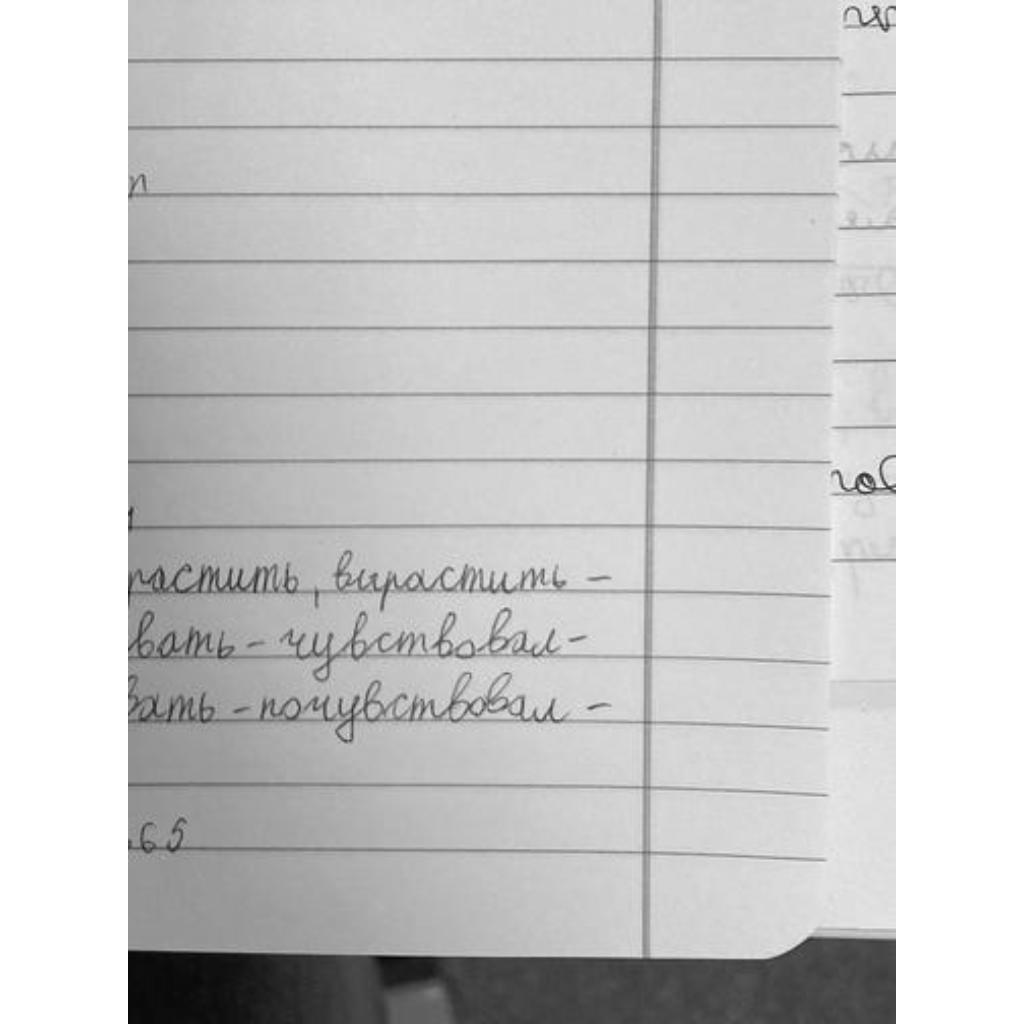 растить, вирастить -
вать - чувствовал -
вать - почувствовал -
65